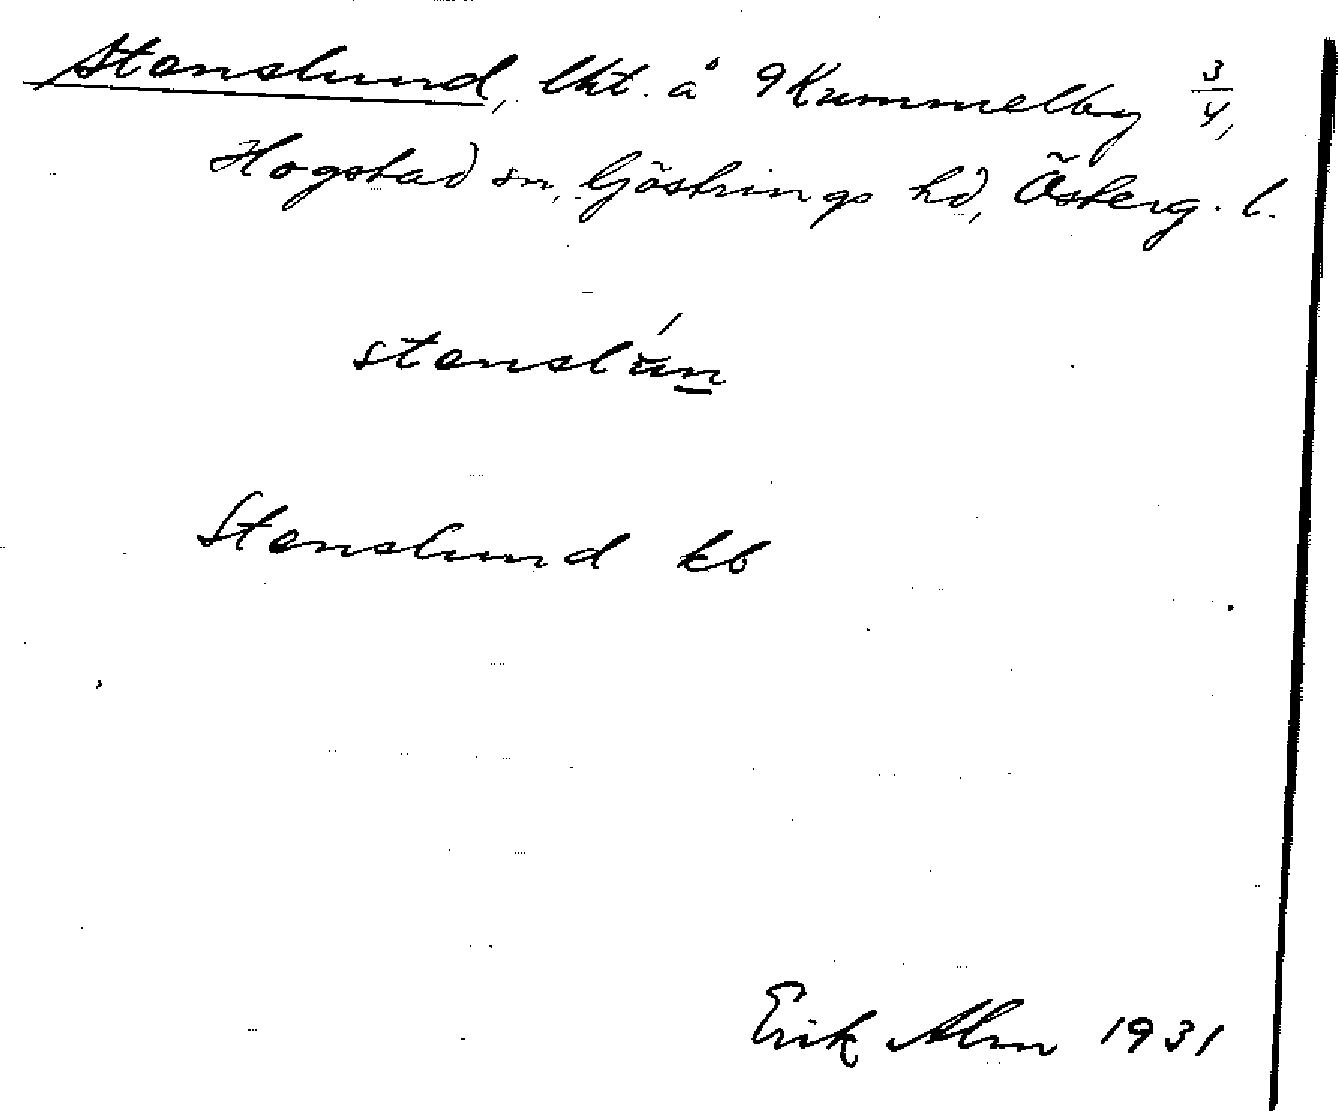 Stenslund, lht. å 9 Kummelby 3/4,
Hogstad sn, Göstrings hd, Österg. l.
stenslún
Stenslund kb
Erik Alm 1931